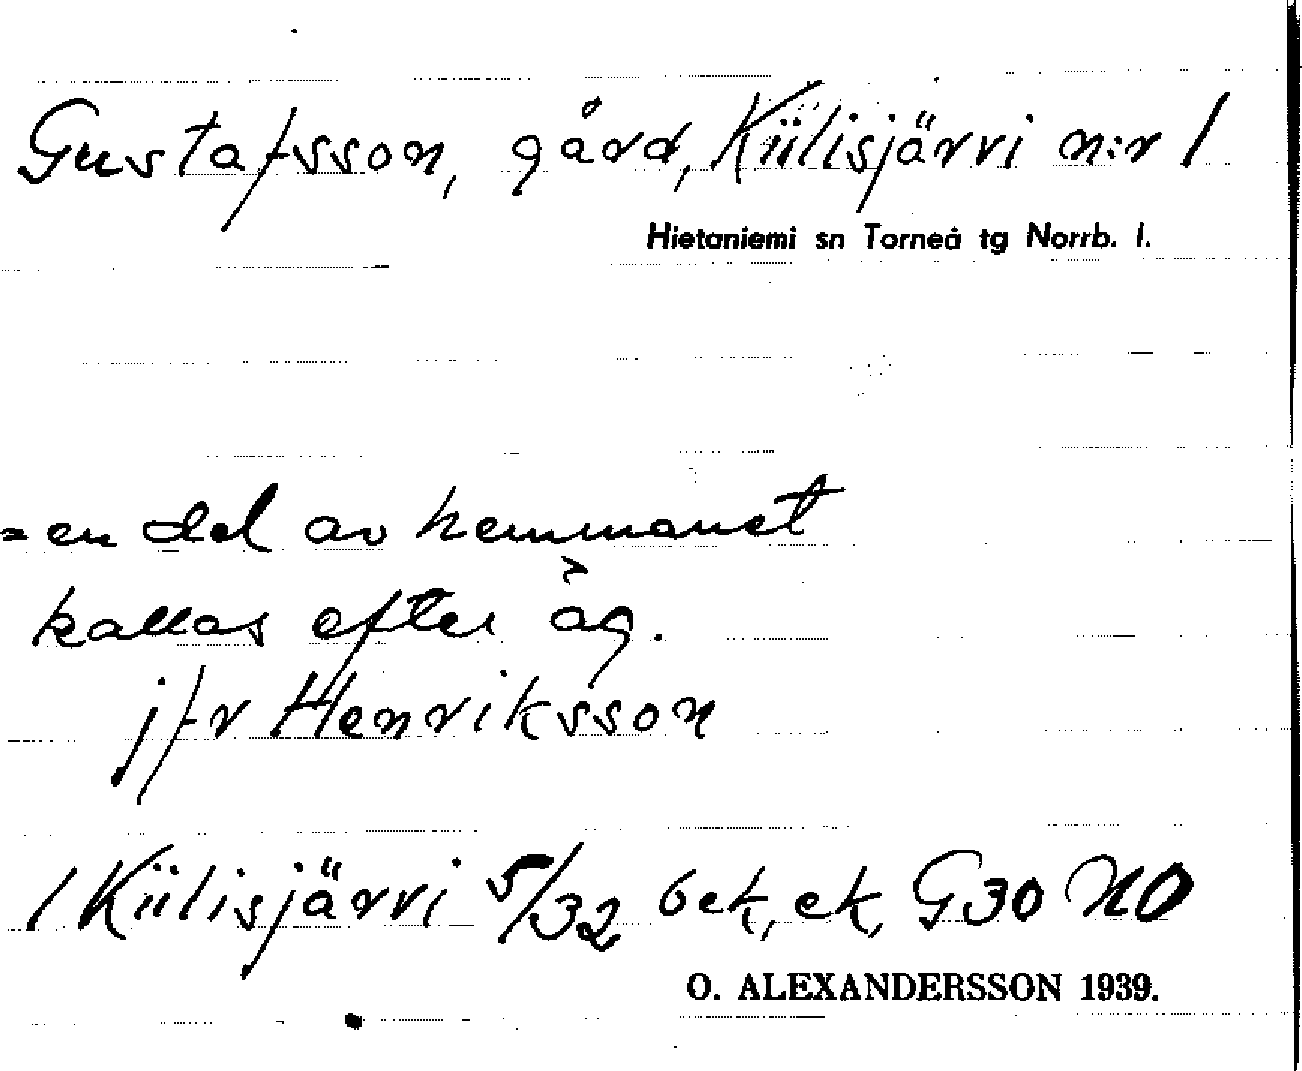 Gustafsson, gård, Kiilisjärvi n:r 1
Hietaniemi sn Torneå tg Norrb. l.
= en del av hemmanet
kallas efter äg.
jfr Henriksson
1 Kiilisjärvi 5/32 bek, ek, G30 NO
O. ALEXANDERSSON 1939.